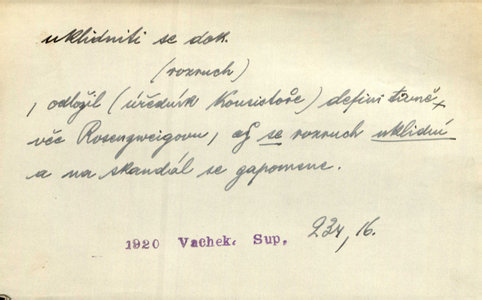 uklidniti se dok.
(rozruch)
, odložil (úředník Konsistoře) definitivně
věc Rosenzweigovu, až se rozruch uklidní
a na skandál se zapomene.
1920 Vachek. Sup. 234, 16.